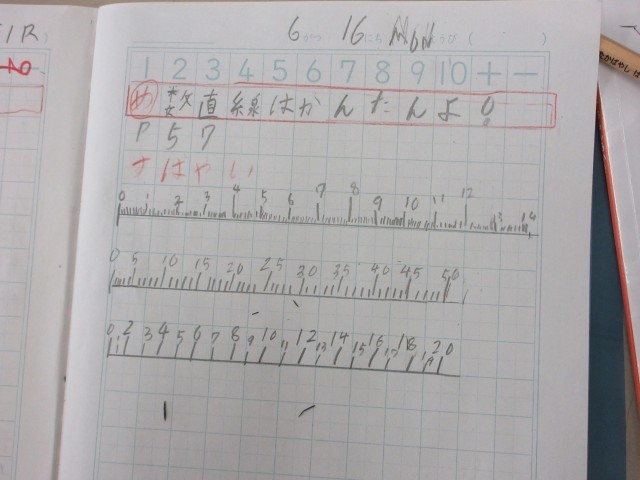 6 がつ 16 にち MON ようび ( )
1 2 3 4 5 6 7 8 9 10 + −
め 数直線はかんたんよ。
P 57
はやい
0 1 2 3 4 5 6 7 8 9 10 11 12 13 14
0 5 10 15 20 25 30 35 40 45 50
0 1 2 3 4 5 6 7 8 9 10 11 12 13 14 15 16 17 18 19 20
たかばやし